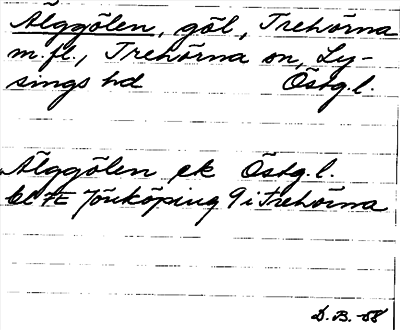 Älggölen, göl, Trehörna
m.fl., Trehörna sn, Ly-
sings hd Östg.l.
Älggölen ek Östg.l.
8E 7E Jönköping 9 i Trehörna
D.B. -58